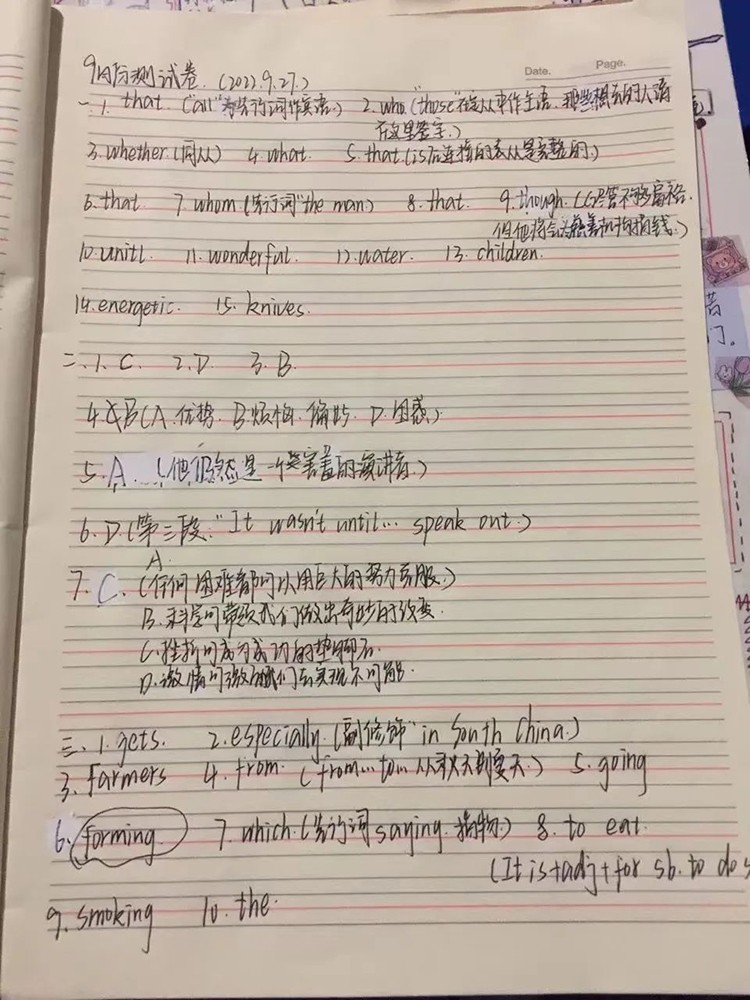 Date. Page.
9月后测试卷. (2022.9.27.)
一.1. that. ("all"为先行词作宾语.) 2. who. ("those"在定从中作主语. 那些想去的人请
在这里签字.)
3. whether. (同从) 4. what. 5. that. (is后连接的表从是完整的.)
6. that. 7. whom. (先行词"the man) 8. that. 9. though. (尽管不够富裕.
但他将会为慈善机构捐钱.)
10. unitl. 11. wonderful. 12. water. 13. children.
14. energetic. 15. knives.
二.1. C. 2. D. 3. B.
4. B (A. 优势. B. 烦恼. 偏见. D. 困惑.)
5. A. (他仍然是一个害羞的演讲者.)
6. D. (第三段. "It wasn't until... speak out.)
7. C. A. (任何困难都可以用巨大的努力克服.)
B. 科学可带领我们做出奇妙的改变.
C. 挫折可成为成功的垫脚石.
D. 激情可激励我们去实现不可能.
三.1. gets. 2. especially. (副修饰" in South China.)
3. farmers 4. from. (from... to... 从秋天到夏天.) 5. going
6. forming. 7. which. (先行词 saying. 指物) 8. to eat.
(It is + adj + for sb. to do s
9. smoking 10. the.